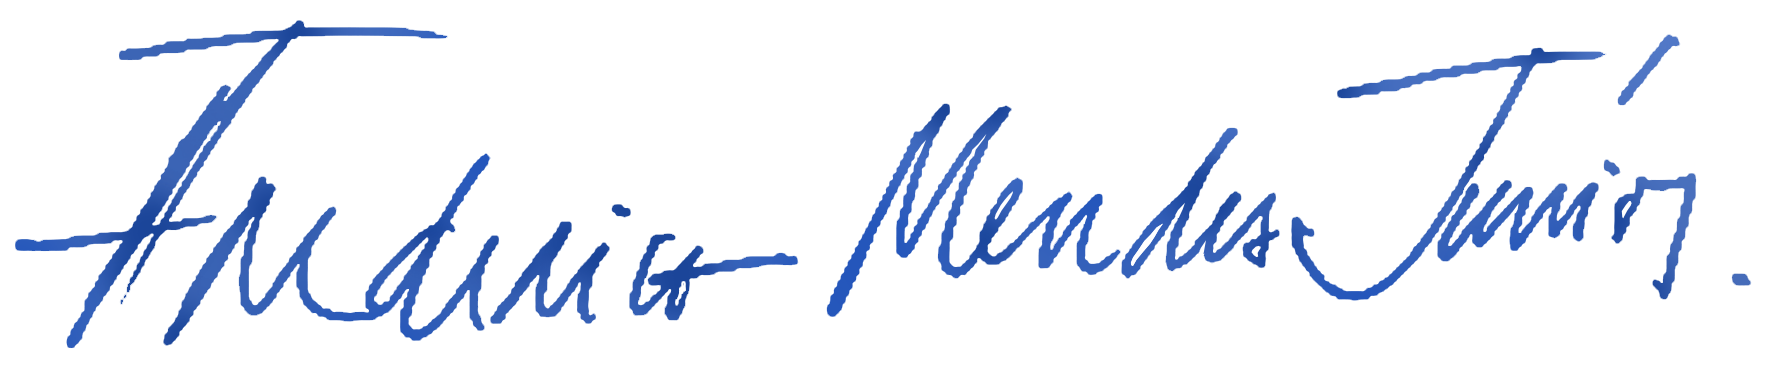 Frederico Mendes Júnior.